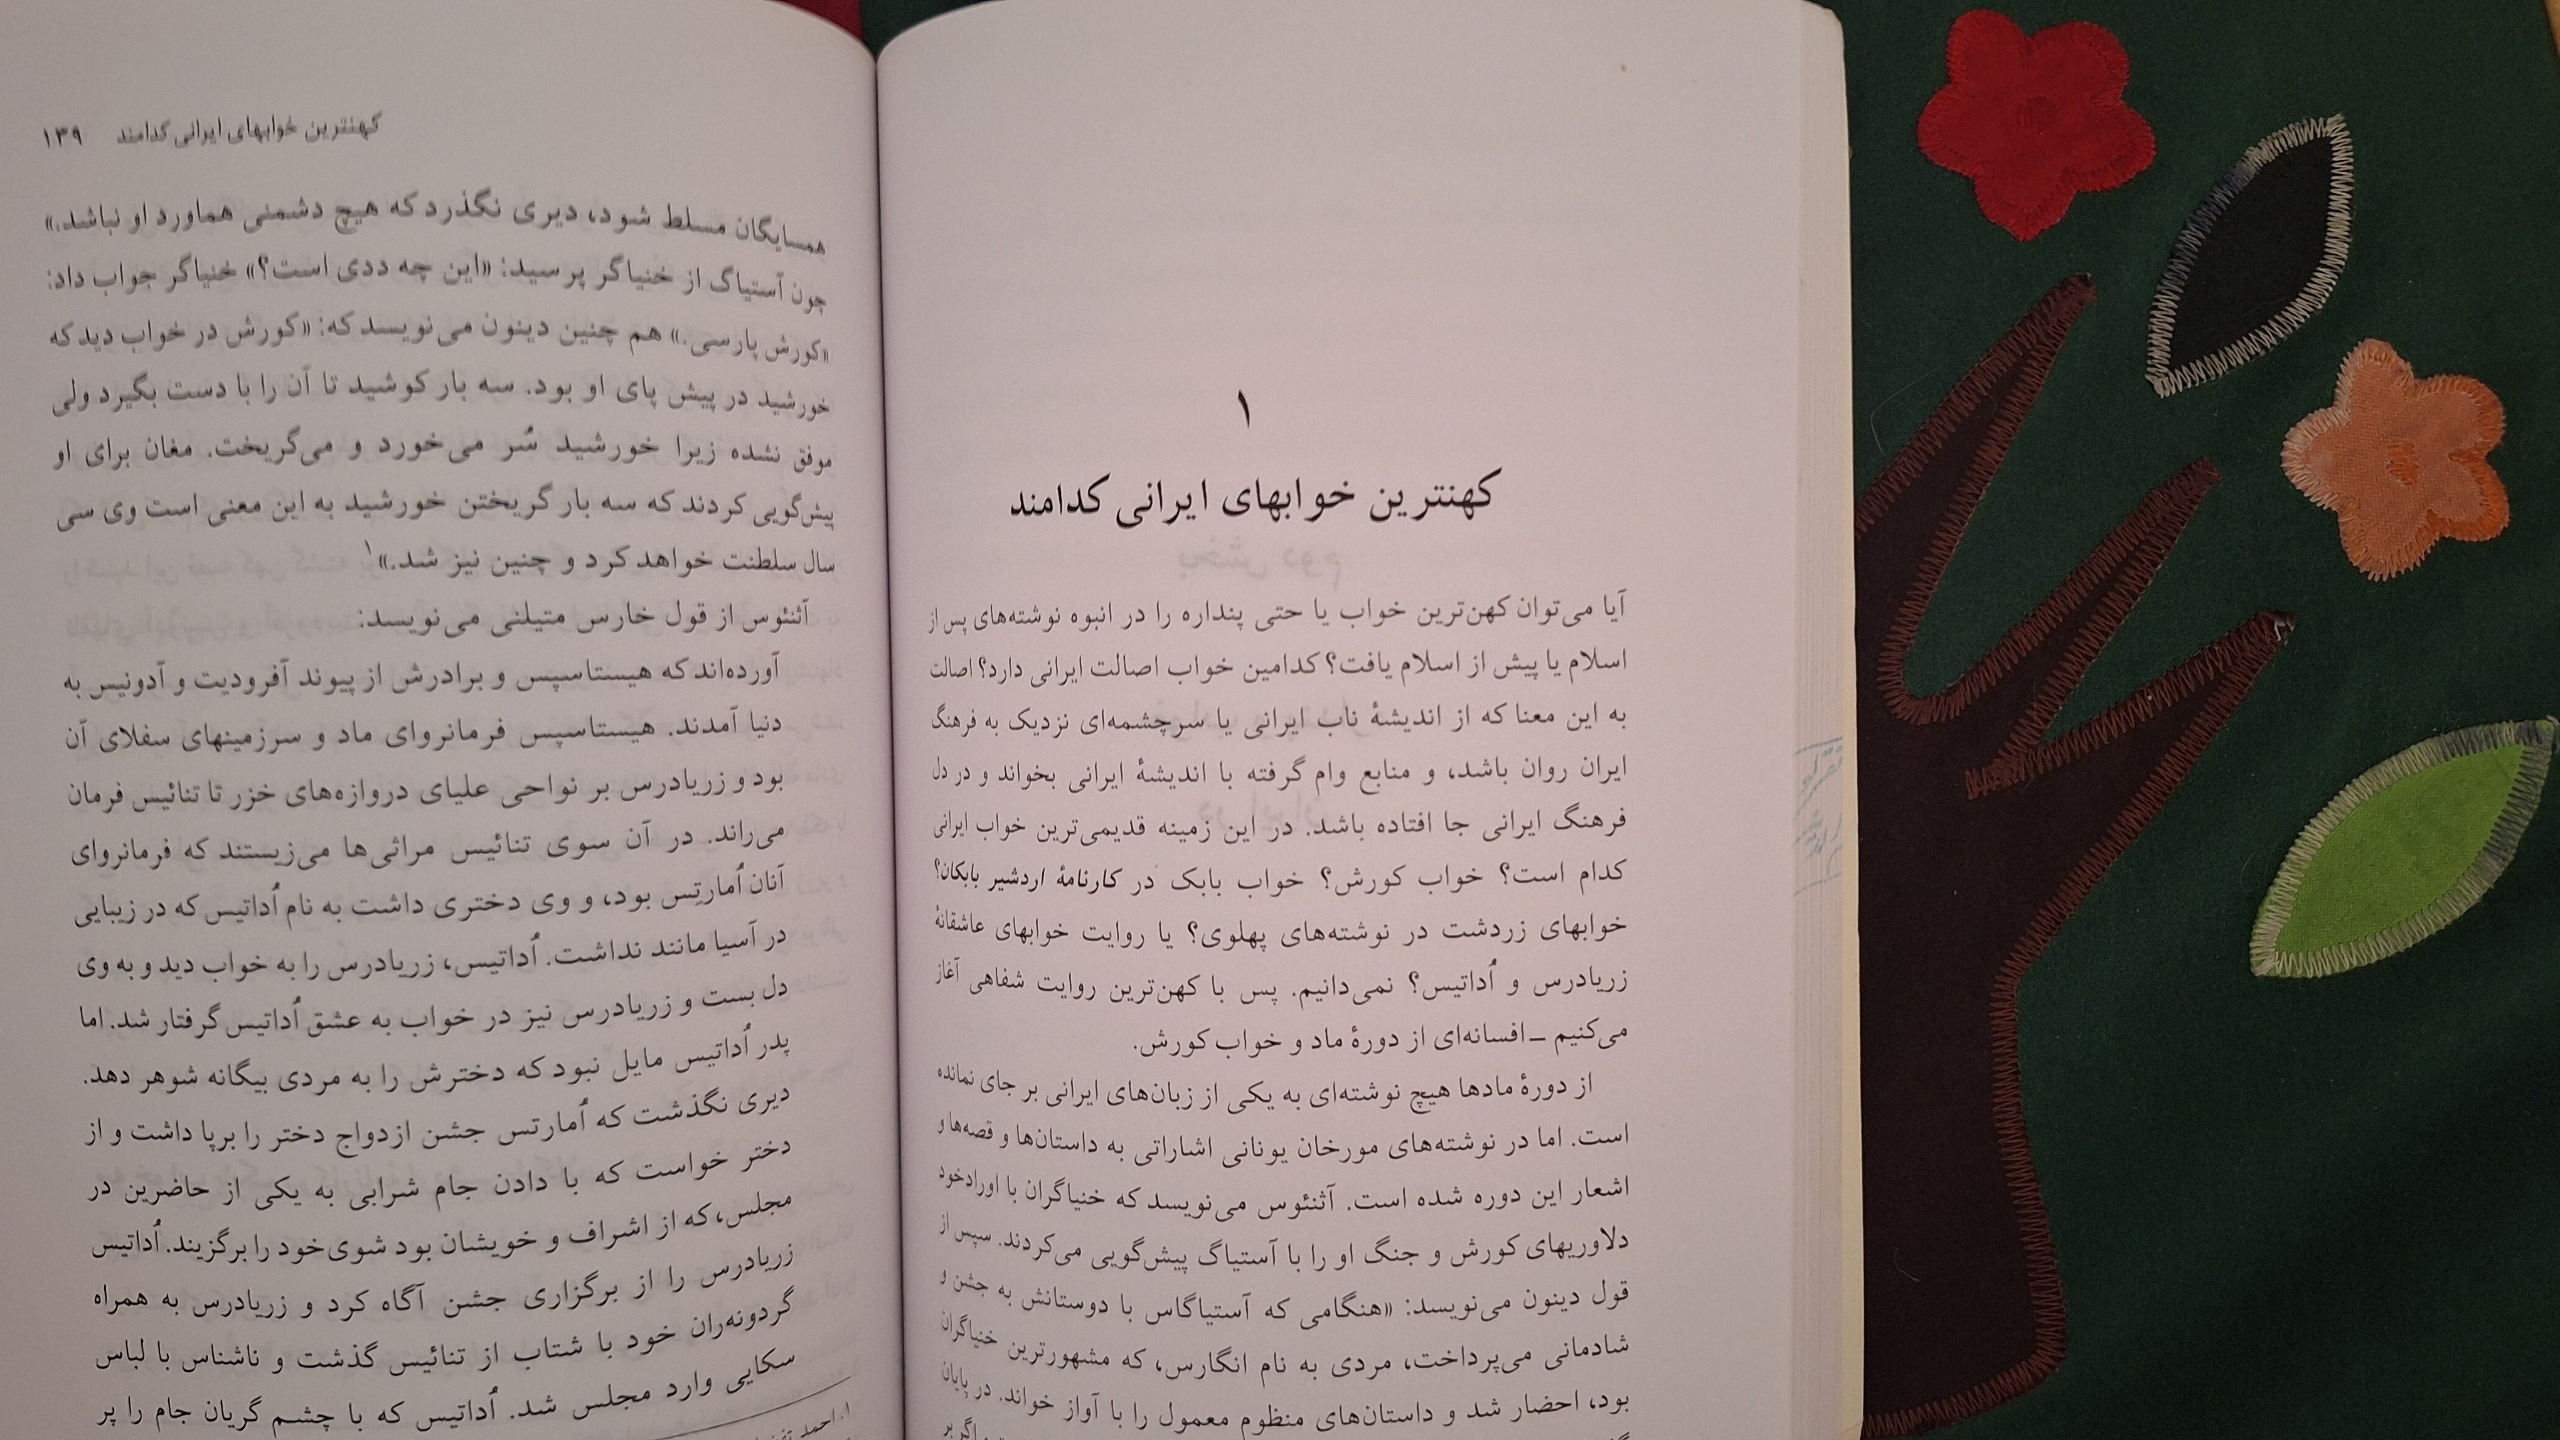 ۱
کهنترین خوابهای ایرانی کدامند
آیا می‌توان کهن‌ترین خواب یا حتی پنداره را در انبوه نوشته‌های پس از
اسلام یا پیش از اسلام یافت؟ کدامین خواب اصالت ایرانی دارد؟ اصالت
به این معنا که از اندیشهٔ ناب ایرانی یا سرچشمه‌ای نزدیک به فرهنگ
ایران روان باشد، و منابع وام گرفته با اندیشهٔ ایرانی بخواند و در دل
فرهنگ ایرانی جا افتاده باشد. در این زمینه قدیمی‌ترین خواب ایرانی
کدام است؟ خواب کورش؟ خواب بابک در کارنامهٔ اردشیر بابکان؟
خوابهای زردشت در نوشته‌های پهلوی؟ یا روایت خوابهای عاشقانهٔ
زریادرس و اُداتیس؟ نمی‌دانیم. پس با کهن‌ترین روایت شفاهی آغاز
می‌کنیم ـ افسانه‌ای از دورهٔ ماد و خواب کورش.
از دورهٔ مادها هیچ نوشته‌ای به یکی از زبان‌های ایرانی بر جای نمانده
است. اما در نوشته‌های مورخان یونانی اشاراتی به داستان‌ها و قصه‌ها و
اشعار این دوره شده است. آثنئوس می‌نویسد که خنیاگران با اوراد خود
دلاوریهای کورش و جنگ او را با آستیاگ پیش‌گویی می‌کردند. سپس از
قول دینون می‌نویسد: «هنگامی که آستیاگاس با دوستانش به جشن و
شادمانی می‌پرداخت، مردی به نام انگارس، که مشهورترین خنیاگران
بود، احضار شد و داستان‌های منظوم معمول را با آواز خواند. در پایان
اگر بر
کهنترین خوابهای ایرانی کدامند ۱۳۹
همسایگان مسلط شود، دیری نگذرد که هیچ دشمنی هماورد او نباشد.»
چون آستیاگ از خنیاگر پرسید: «این چه ددی است؟» خنیاگر جواب داد:
«کورش پارسی.» هم چنین دینون می‌نویسد که: «کورش در خواب دید که
خورشید در پیش پای او بود. سه بار کوشید تا آن را با دست بگیرد ولی
موفق نشده زیرا خورشید سُر می‌خورد و می‌گریخت. مغان برای او
پیش‌گویی کردند که سه بار گریختن خورشید به این معنی است وی سی
سال سلطنت خواهد کرد و چنین نیز شد.»۱
آثنئوس از قول خارس متیلنی می‌نویسد:
آورده‌اند که هیستاسپس و برادرش از پیوند آفرودیت و آدونیس به
دنیا آمدند. هیستاسپس فرمانروای ماد و سرزمینهای سفلای آن
بود و زریادرس بر نواحی علیای دروازه‌های خزر تا تنائیس فرمان
می‌راند. در آن سوی تنائیس مراثی‌ها می‌زیستند که فرمانروای
آنان اُمارتِس بود، و وی دختری داشت به نام اُداتیس که در زیبایی
در آسیا مانند نداشت. اُداتیس، زریادرس را به خواب دید و به وی
دل بست و زریادرس نیز در خواب به عشق اُداتیس گرفتار شد. اما
پدر اُداتیس مایل نبود که دخترش را به مردی بیگانه شوهر دهد.
دیری نگذشت که اُمارتس جشن ازدواج دختر را برپا داشت و از
دختر خواست که با دادن جام شرابی به یکی از حاضرین در
مجلس، که از اشراف و خویشان بود شوی خود را برگزیند. اُداتیس
زریادرس را از برگزاری جشن آگاه کرد و زریادرس به همراه
گردونه‌ران خود با شتاب از تنائیس گذشت و ناشناس با لباس
سکایی وارد مجلس شد. اُداتیس که با چشم گریان جام را پر
۱. احمد